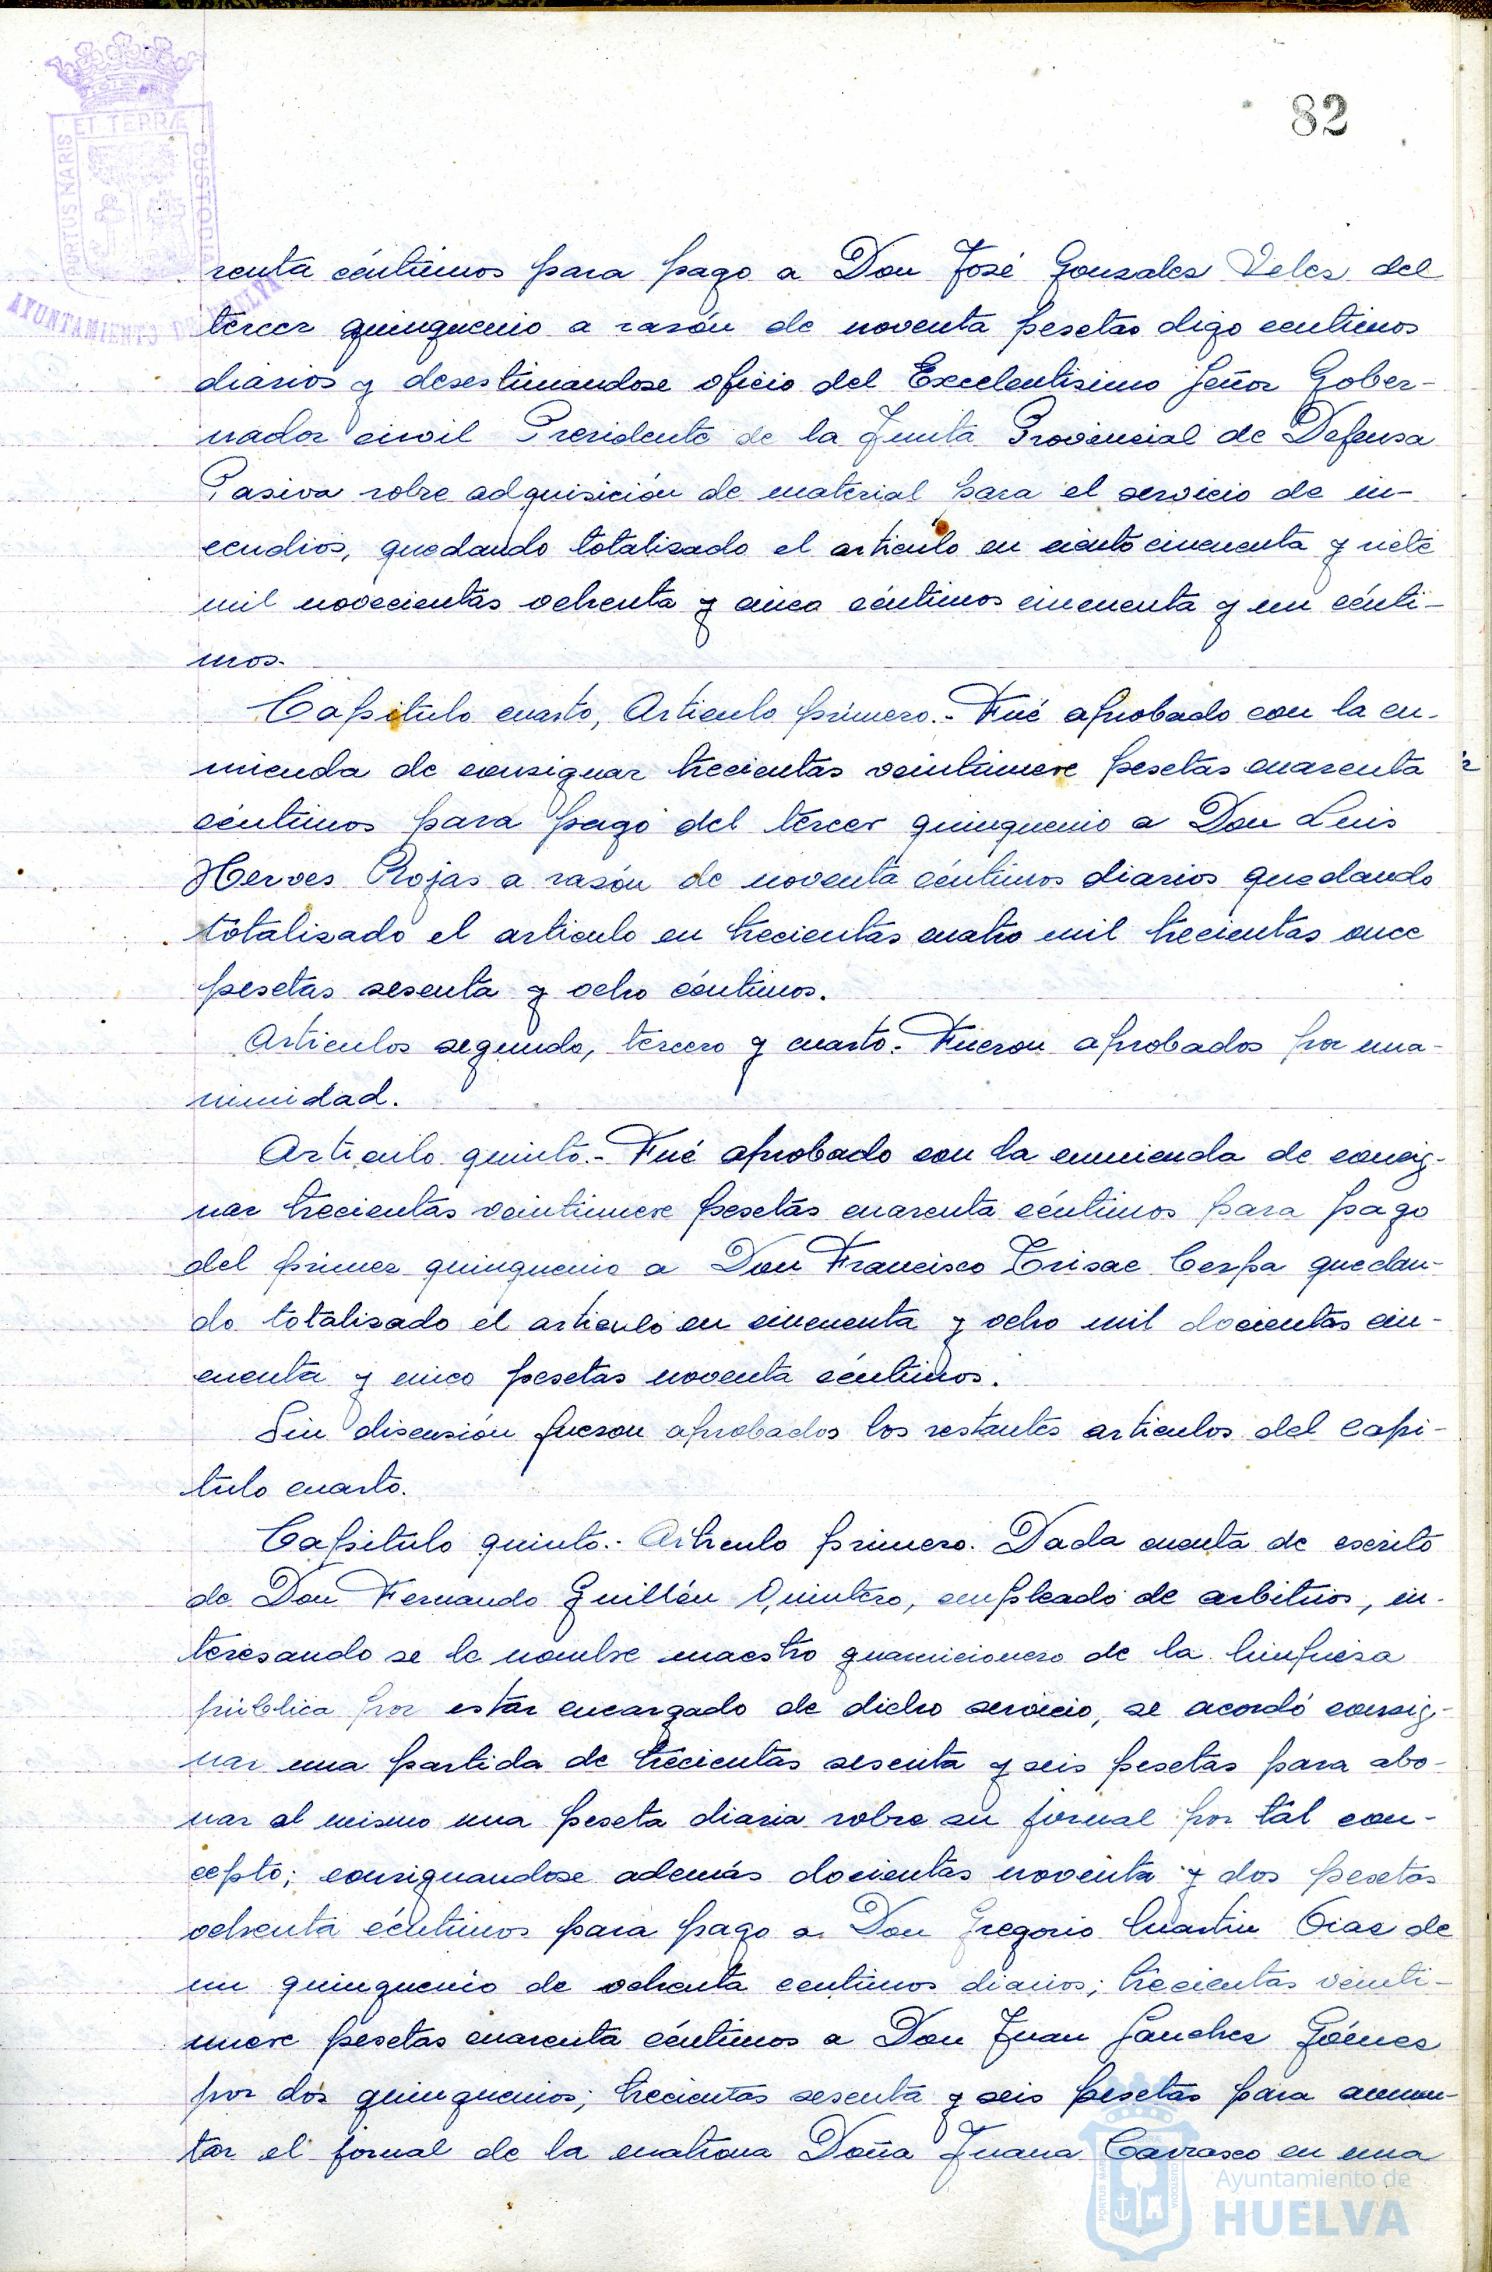 82
PORTUS MARIS ET TERRÆ CUSTODIA
AYUNTAMIENTO DE HUELVA
renta céntimos para pago a Don José Gonzalez Velez del
tercer quinquenio a razón de noventa pesetas digo centimos
diarios y desestimandose oficio del Excelentisimo Señor Gober-
nador civil Presidente de la Junta Provincial de Defensa
Pasiva sobre adquisición de material para el servicio de in-
cendios, quedando totalizado el articulo en ciento cincuenta y siete
mil novecientas ochenta y cinco céntimos cincuenta y un cénti-
mos.
Capitulo cuarto, Articulo primero.- Fué aprobado con la en-
mienda de consignar trecientas veintinueve pesetas cuarenta
céntimos para pago del tercer quinquenio a Don Luis
Herves Rojas a razón de noventa céntimos diarios quedando
totalizado el articulo en trecientas cuatro mil trecientas once
pesetas sesenta y ocho céntimos.
Articulos segundo, tercero y cuarto.- Fueron aprobados por una-
nimidad.
Articulo quinto.- Fué aprobado con la enmienda de consig-
nar trecientas veintinueve pesetas cuarenta céntimos para pago
del primer quinquenio a Don Francisco Trisac Cerpa quedan-
do totalizado el articulo en cincuenta y ocho mil docientas cin-
cuenta y cinco pesetas noventa céntimos.
Sin discusión fueron aprobados los restantes articulos del capi-
tulo cuarto.
Capitulo quinto.- Articulo primero. Dada cuenta de escrito
de Don Fernando Guillén Quintero, empleado de arbitrios, in-
teresando se le nombre maestro guarnicionero de la limpieza
pública por estar encargado de dicho servicio, se acordó consig-
nar una partida de trecientas sesenta y seis pesetas para abo-
nar al mismo una peseta diaria sobre su jornal por tál con-
cepto; consignandose además docientas noventa y dos pesetas
ochenta céntimos para pago a Don Gregorio Martin Diaz de
un quinquenio de ochenta centimos diarios; trecientas veinti-
nueve pesetas cuarenta céntimos a Don Juan Sanchez Gómez
por dos quinquenios; trecientas sesenta y seis pesetas para aumen-
tar el jornal de la matrona Doña Juana Carrasco en una
Ayuntamiento de
HUELVA